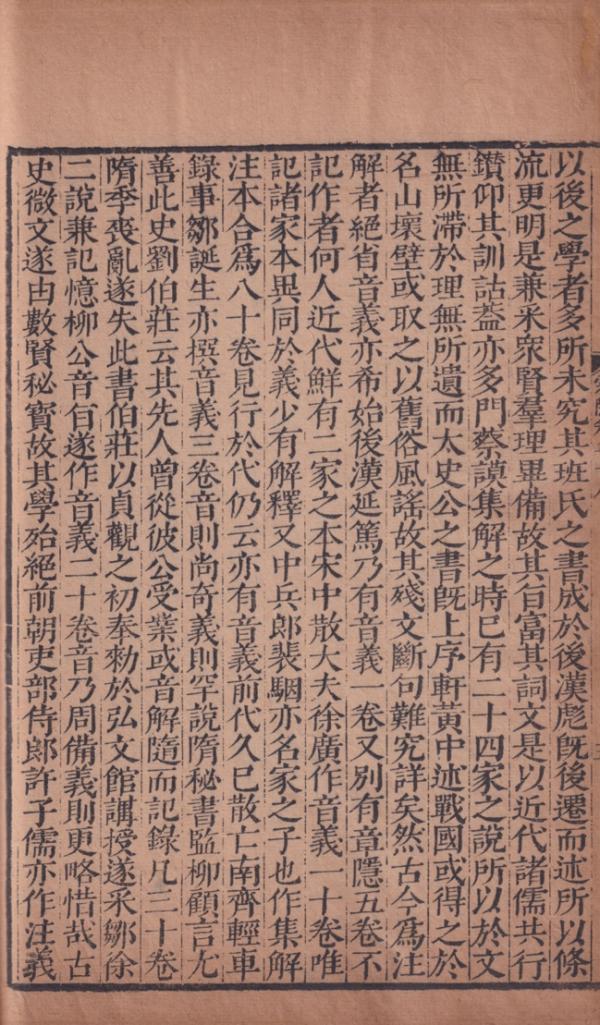 以後之學者多所未究其班氏之書成於後漢彪旣後遷而述所以條
流更明是兼采衆賢羣理畢備故其旨富其詞文是以近代諸儒共行
鑽仰其訓詁葢亦多門蔡謨集解之時巳有二十四家之說所以於文
無所滯於理無所遺而太史公之書旣上序軒黃中述戰國或得之於
名山壞壁或取之以舊俗風謠故其殘文斷句難究詳矣然古今爲注
解者絕省音義亦希始後漢延篤乃有音義一卷又別有章隱五卷不
記作者何人近代鮮有二家之本宋中散大夫徐廣作音義一十卷唯
記諸家本異同於義少有解釋又中兵郎裴駰亦名家之子也作集解
注本合爲八十卷見行於代仍云亦有音義前代久巳散亡南齊輕車
錄事鄒誕生亦撰音義三卷音則尚奇義則罕說隋秘書監柳顧言尢
善此史劉伯莊云其先人曾從彼公受業或音解隨而記錄凡三十卷
隋季喪亂遂失此書伯莊以貞觀之初奉勑於弘文館講授遂采鄒徐
二說兼記憶柳公音旨遂作音義二十卷音乃周備義則更略惜哉古
史微文遂由數賢秘寳故其學殆絕前朝吏部侍郎許子儒亦作注義